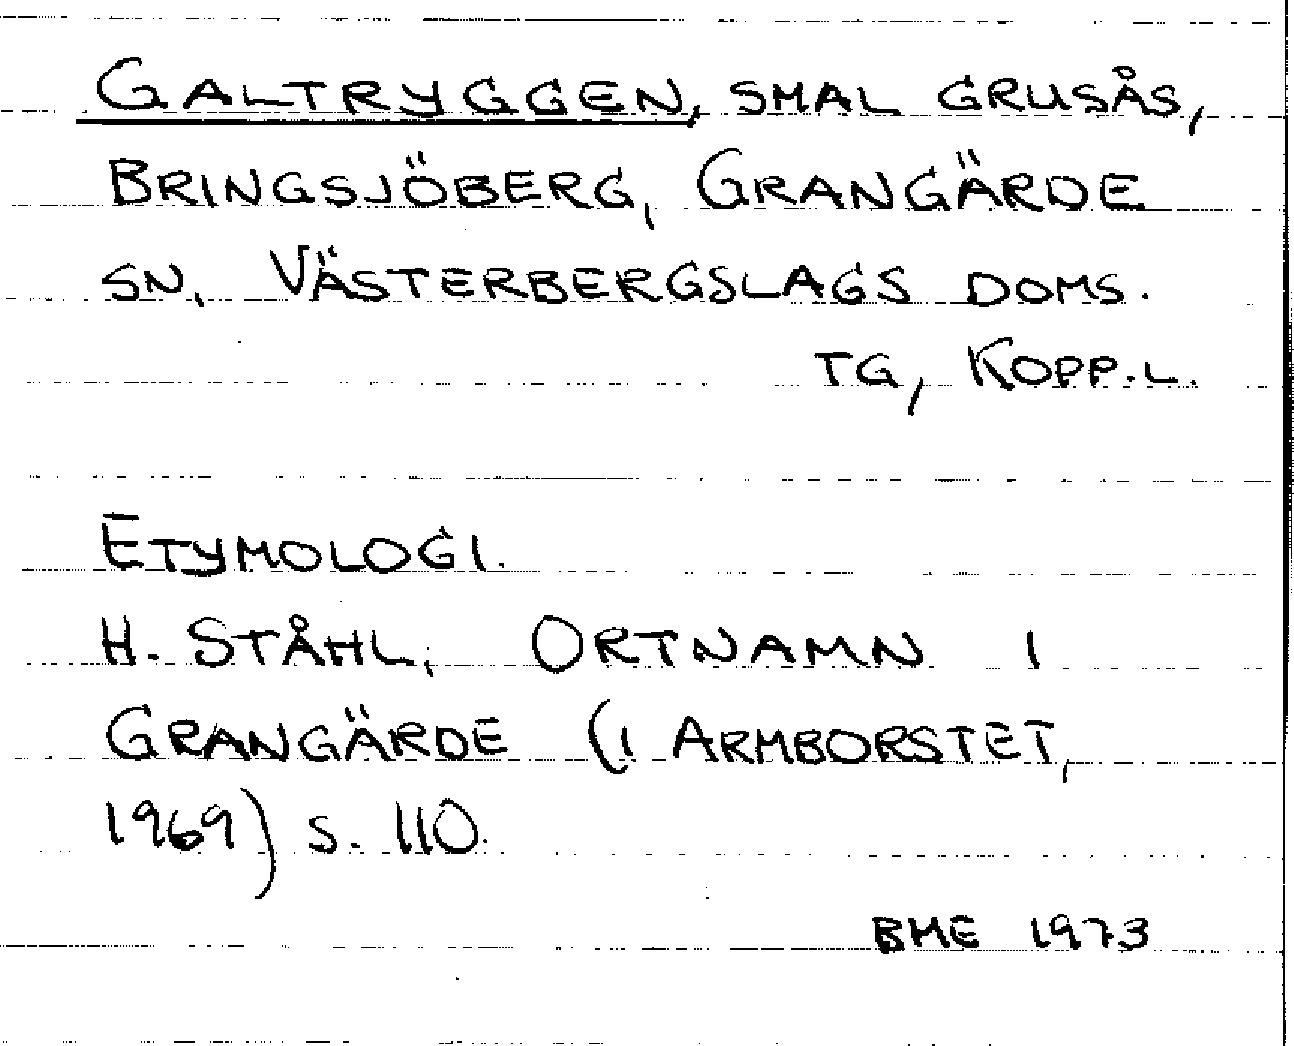 GALTRYGGEN, SMAL GRUSÅS,
BRINGSJÖBERG, GRANGÄRDE
SN, VÄSTERBERGSLAGS DOMS.
TG, KOPP.L.
ETYMOLOGI.
H. STÅHL, ORTNAMN I
GRANGÄRDE (I ARMBORSTET,
1969) S. 110.
BME 1973